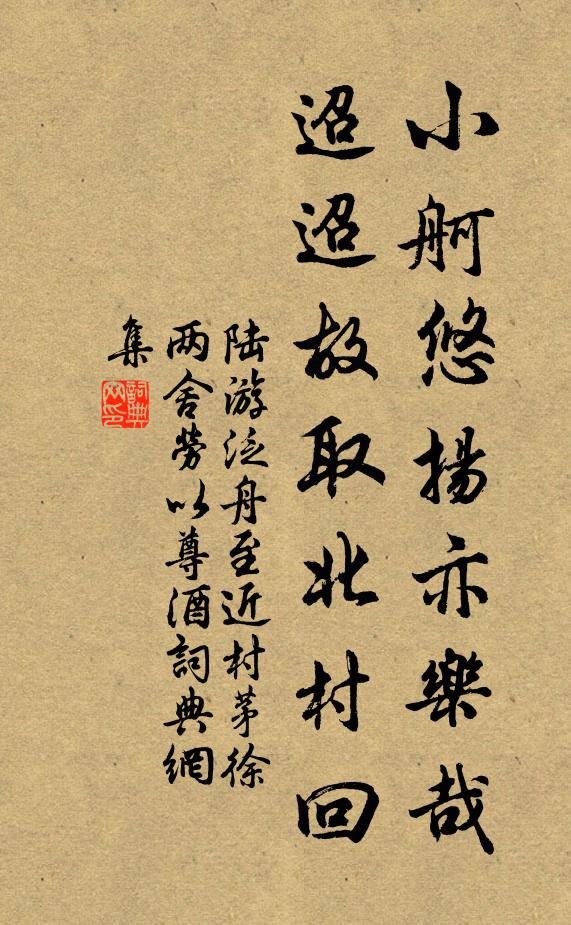 小舸悠揚亦樂哉
迢迢故取北村回
陆游泛舟至近村茅徐
两舍勞以尊酒詞典網
集
詞典
网印